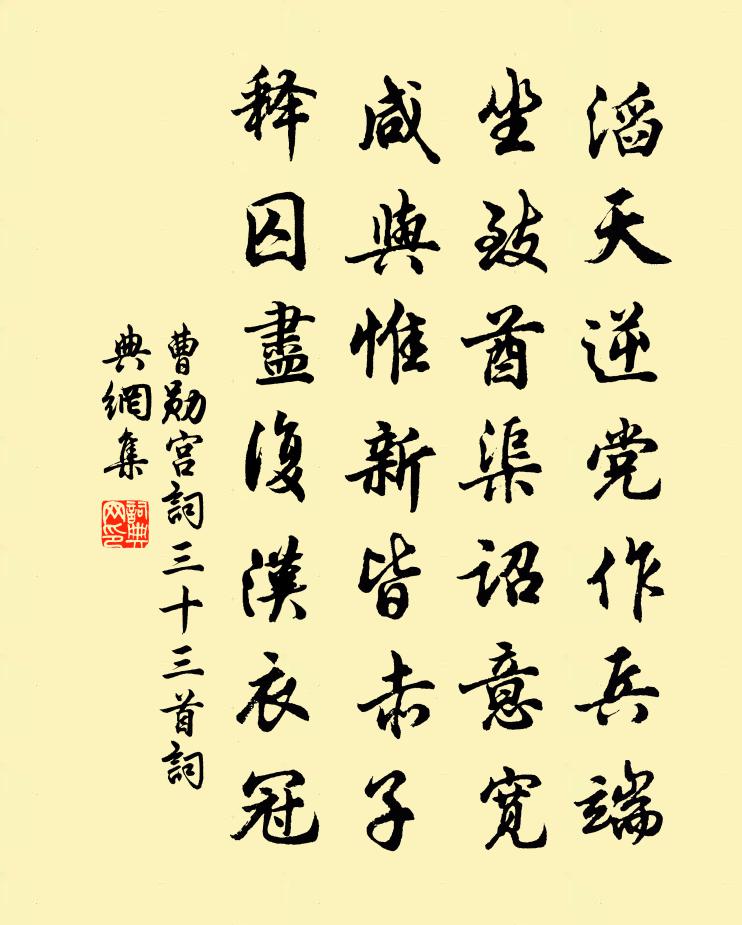 滔天逆党作兵端
坐致酋渠诏意宽
咸与惟新皆赤子
释囚盡復漢衣冠
曹勋宫詞三十三首詞
典網集
詞典网印